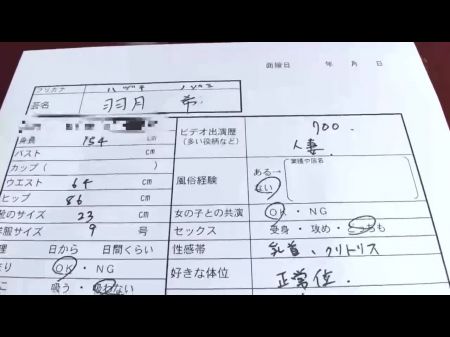 面接日 年 月 日
フリガナ ハヅキ ノゾミ
芸名 羽月 希
身長 154 cm
バスト cm
カップ( )
ウエスト 64 cm
ヒップ 86 cm
靴のサイズ 23 cm
洋服サイズ 9 号
生理 日から 日間くらい
OK・NG
吸う・吸わない
ビデオ出演歴 700.
(多い役柄など) 人妻
風俗経験 ある→ ない
(業種や店名)
女の子との共演 OK・NG
セックス 受身・攻め・どっちも
性感帯 乳首、クリトリス
好きな体位 正常位